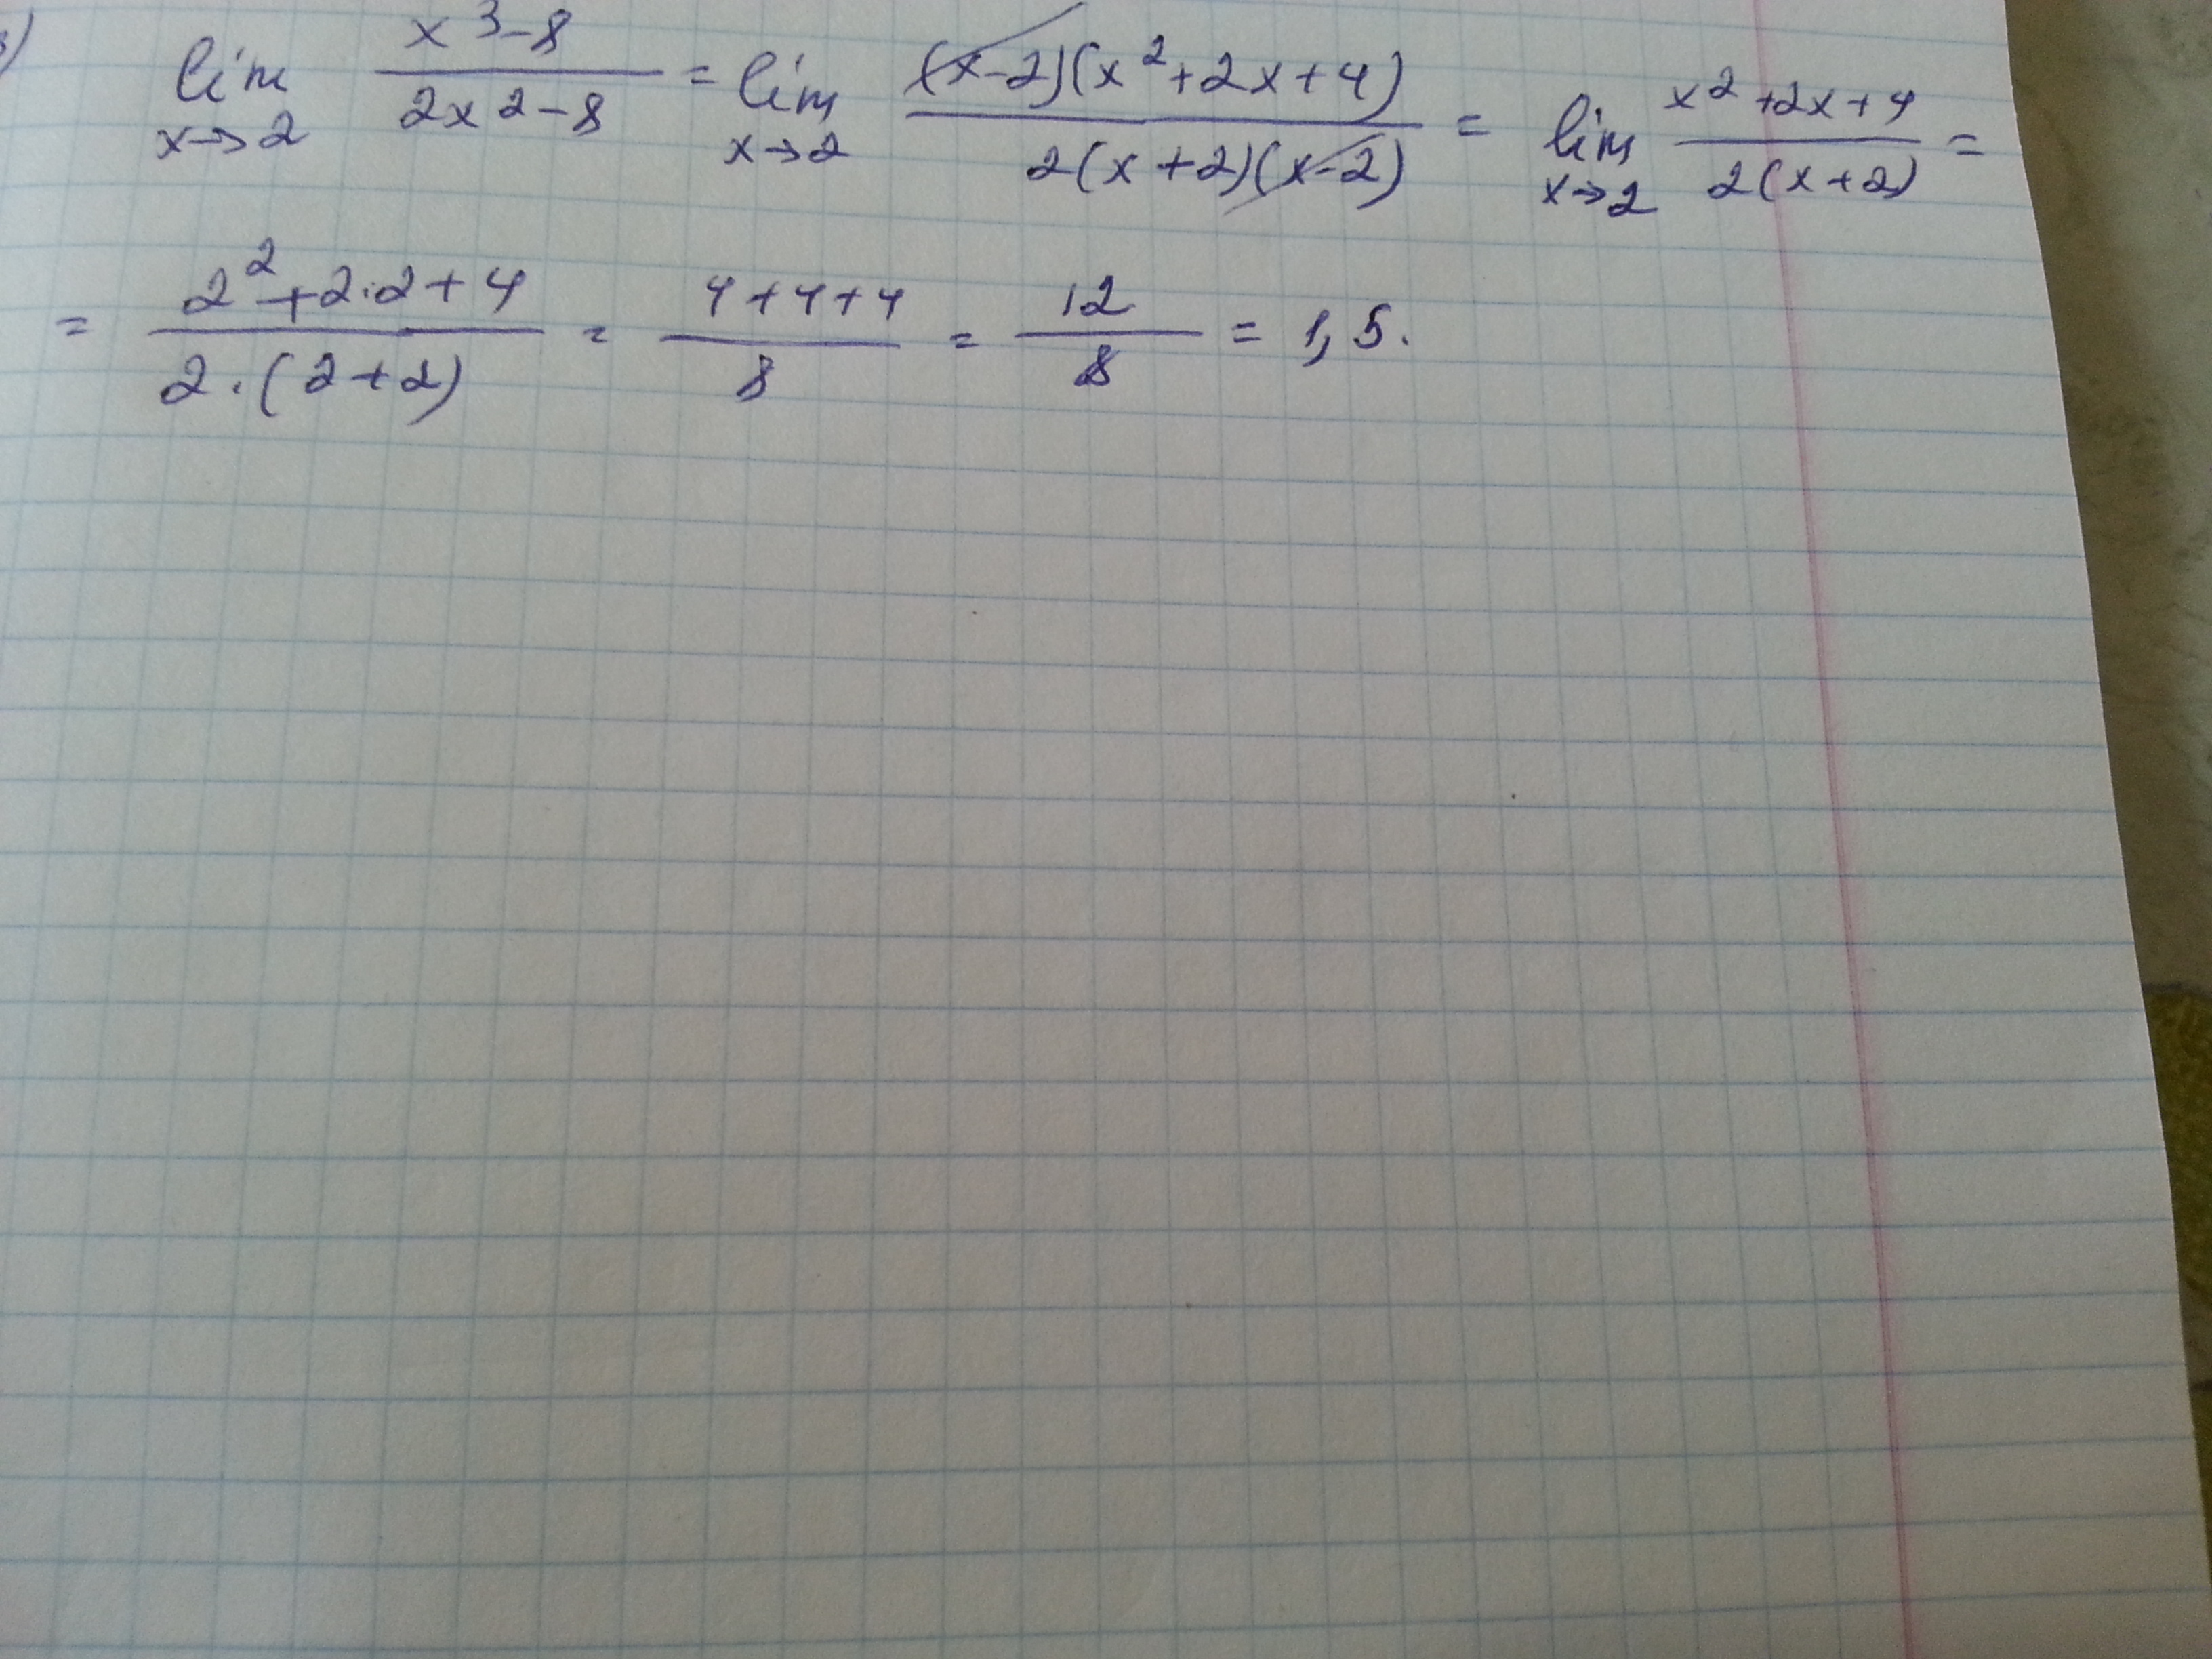 ) lim x→2 (x³-8)/(2x²-8) = lim x→2 ((x-2)(x²+2x+4))/(2(x+2)(x-2)) = lim x→2 (x²+2x+4)/(2(x+2)) =
= (2²+2·2+4)/(2·(2+2)) = (4+4+4)/8 = 12/8 = 1,5.